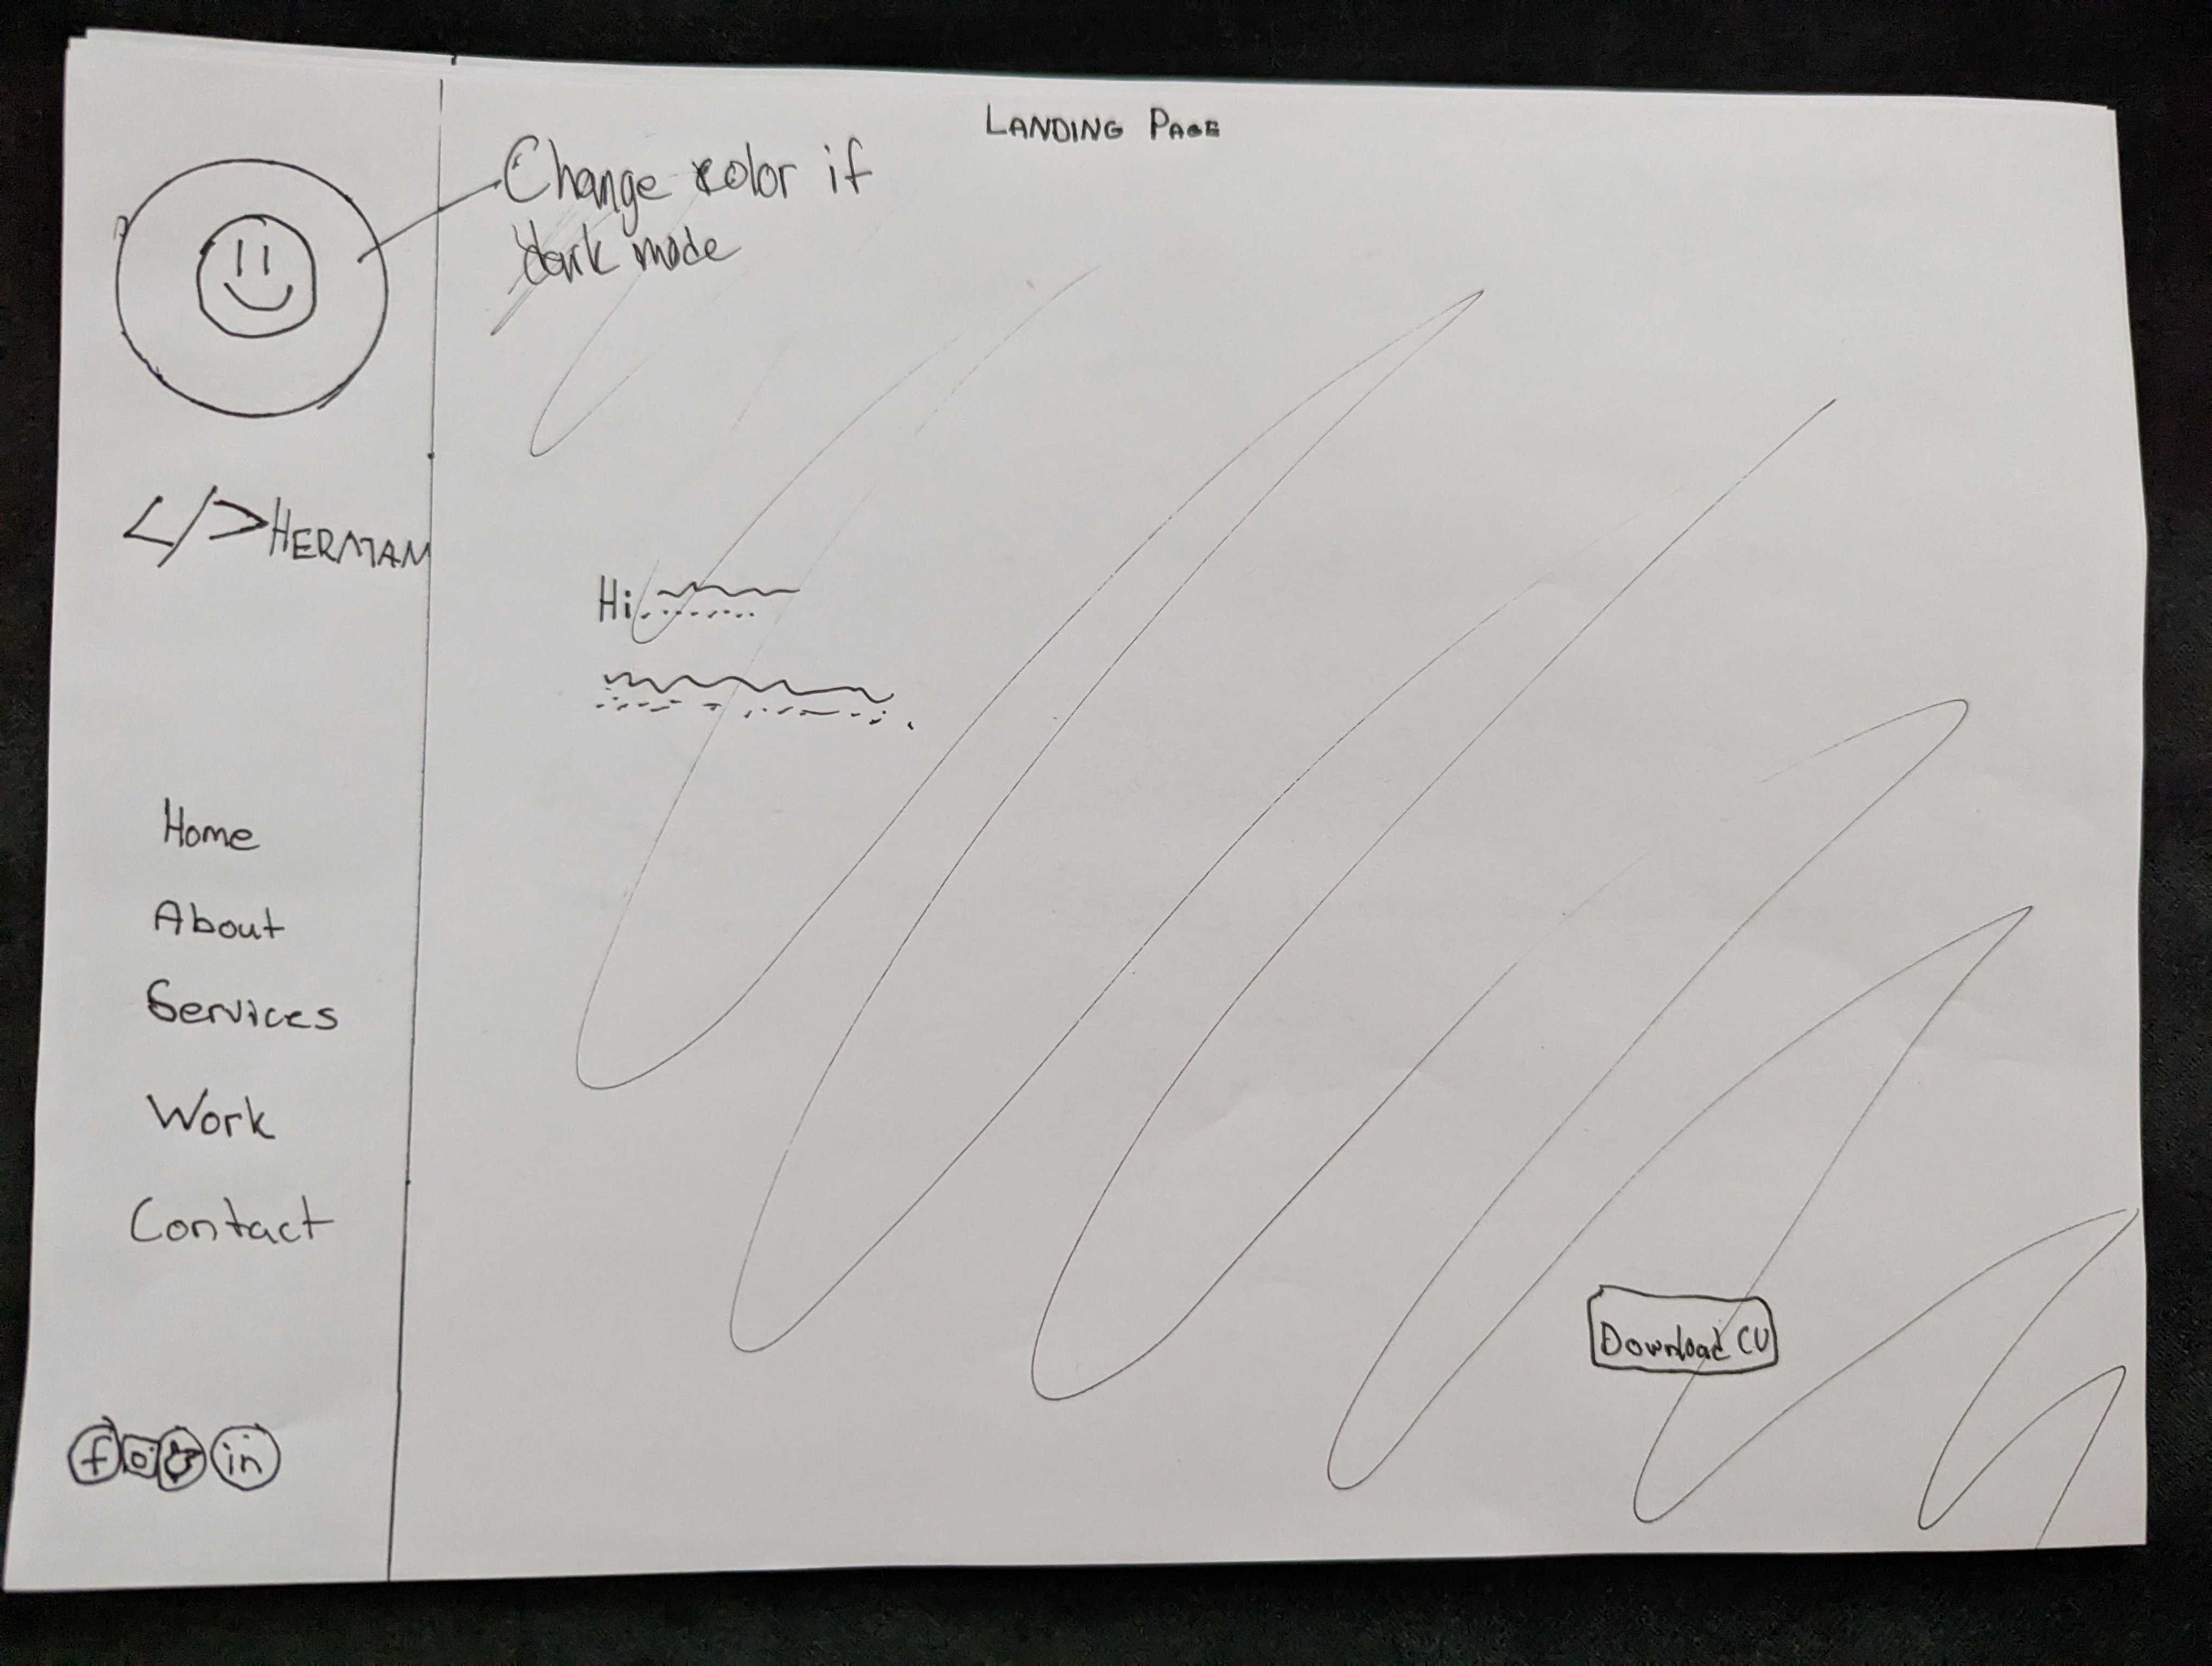 LANDING PAGE
Change color if
dark mode
</>HERMAN
Hi
Home
About
Services
Work
Contact
Download CV
f in